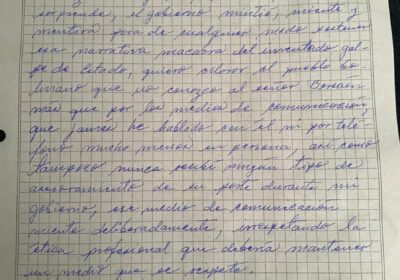 sorprende, el gobierno mintió, miente y
mentirá para de cualquier modo sostener
esa narrativa macabra del inventado gol-
pe de Estado, quiero aclarar al pueblo bo-
liviano que no conozco al señor
más que por los medios de comunicación,
que jamás he hablado con él ni por telé-
fono mucho menos en persona, así como
tampoco nunca recibí ningún tipo de
asesoramiento de su parte durante mi
gobierno, ese medio de comunicación
miente deliberadamente, irrespetando la
ética profesional que debería mantener
un medio que se respete.